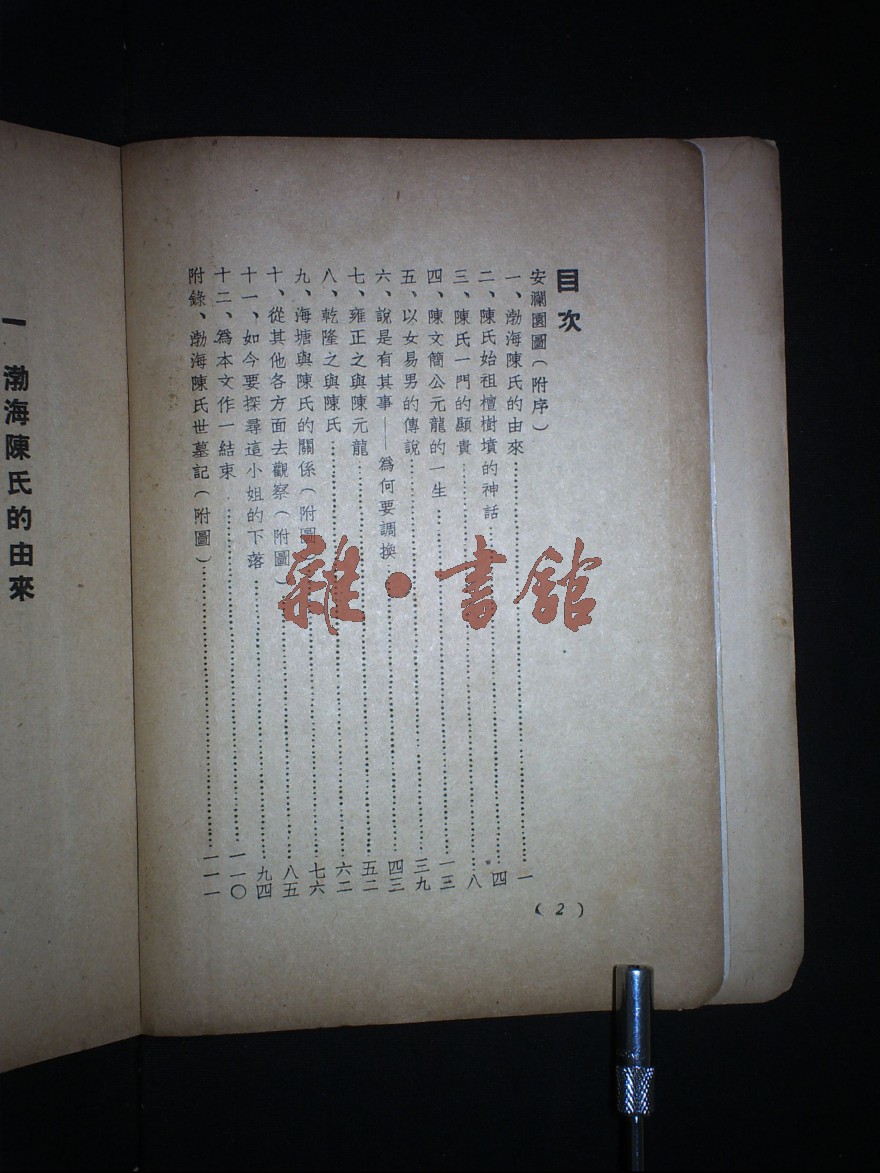 目次
安瀾園圖(附序)
一、渤海陳氏的由來……一
二、陳氏始祖檀樹墳的神話……四
三、陳氏一門的顯貴……八
四、陳文簡公元龍的一生……一三
五、以女易男的傳說……三九
六、說是有其事——為何要調換……四三
七、雍正之與陳元龍……五二
八、乾隆之與陳氏……六二
九、海塘與陳氏的關係(附圖)……七六
十、從其他各方面去觀察(附圖)……八五
十一、如今要探尋這小姐的下落……九四
十二、為本文作一結束……一一〇
附錄、渤海陳氏世墓記(附圖)……一一一
(2)
一 渤海陳氏的由來
雜·書館